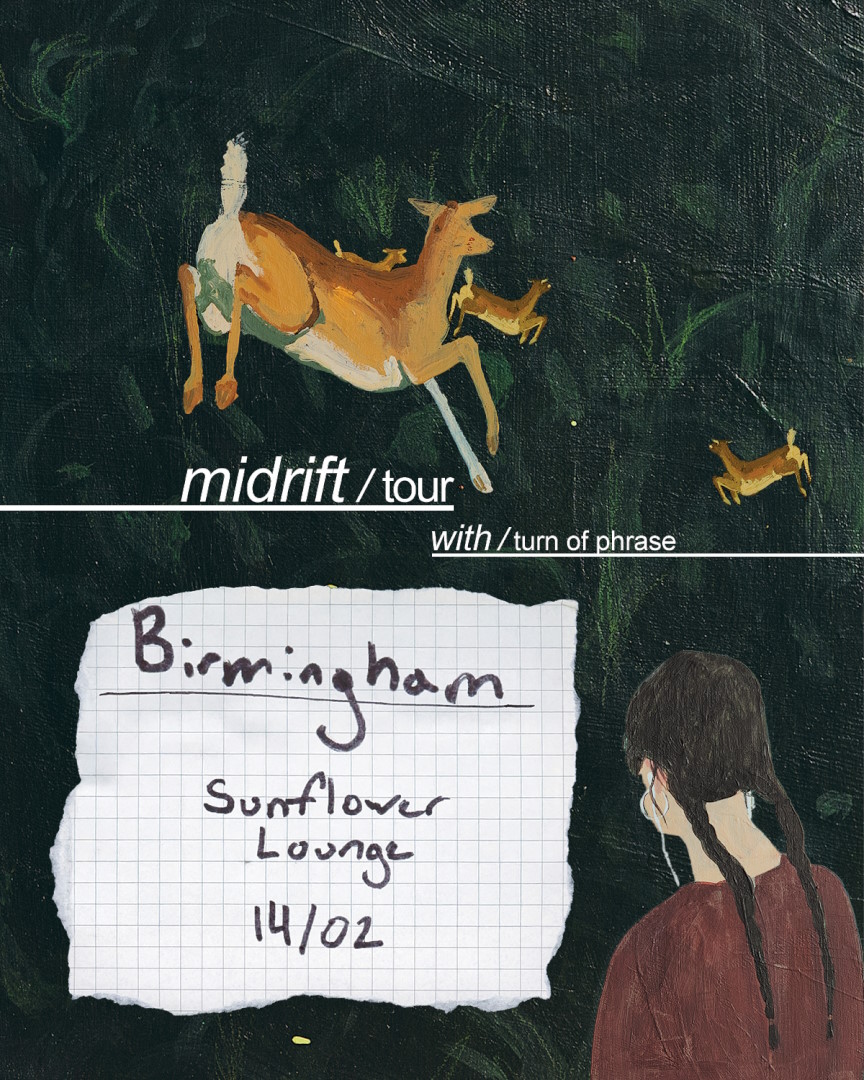 midrift / tour
with / turn of phrase
Birmingham
Sunflower
Lounge
14/02